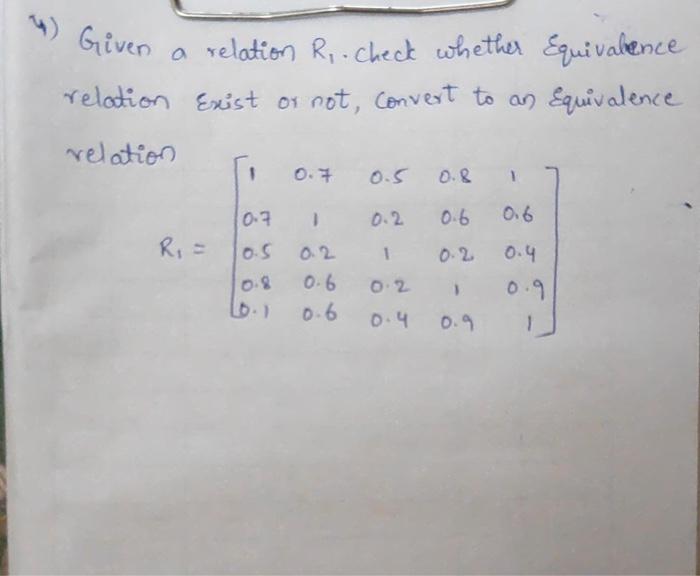 4) Given a relation R₁. check whether Equivalence
relation Exist or not, Convert to an Equivalence
relation
1 0.7 0.5 0.8 1
0.7 1 0.2 0.6 0.6
R₁ = 0.5 0.2 1 0.2 0.4
0.8 0.6 0.2 1 0.9
0.1 0.6 0.4 0.9 1